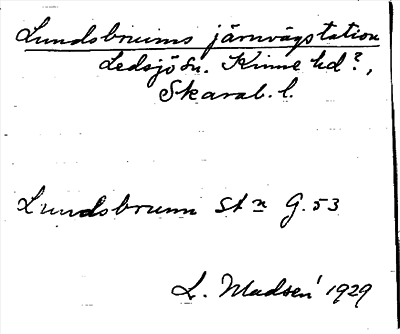 Lundsbrunns järnvägstation
Ledsjö sn. Kinne hd?,
Skarab. l.
Lundsbrunn St n G. 53
L. Madsen 1929